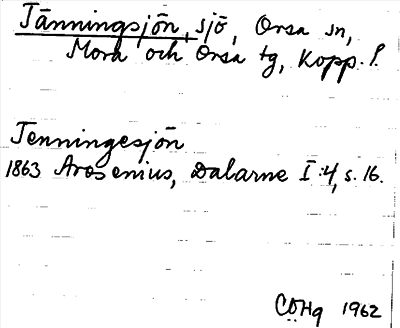 Tänningsjön, sjö, Orsa sn,
Mora och Orsa tg, Kopp. l.
Jenningesjön
1863 Arosenius, Dalarne I:4, s. 16.
CÖHg 1962